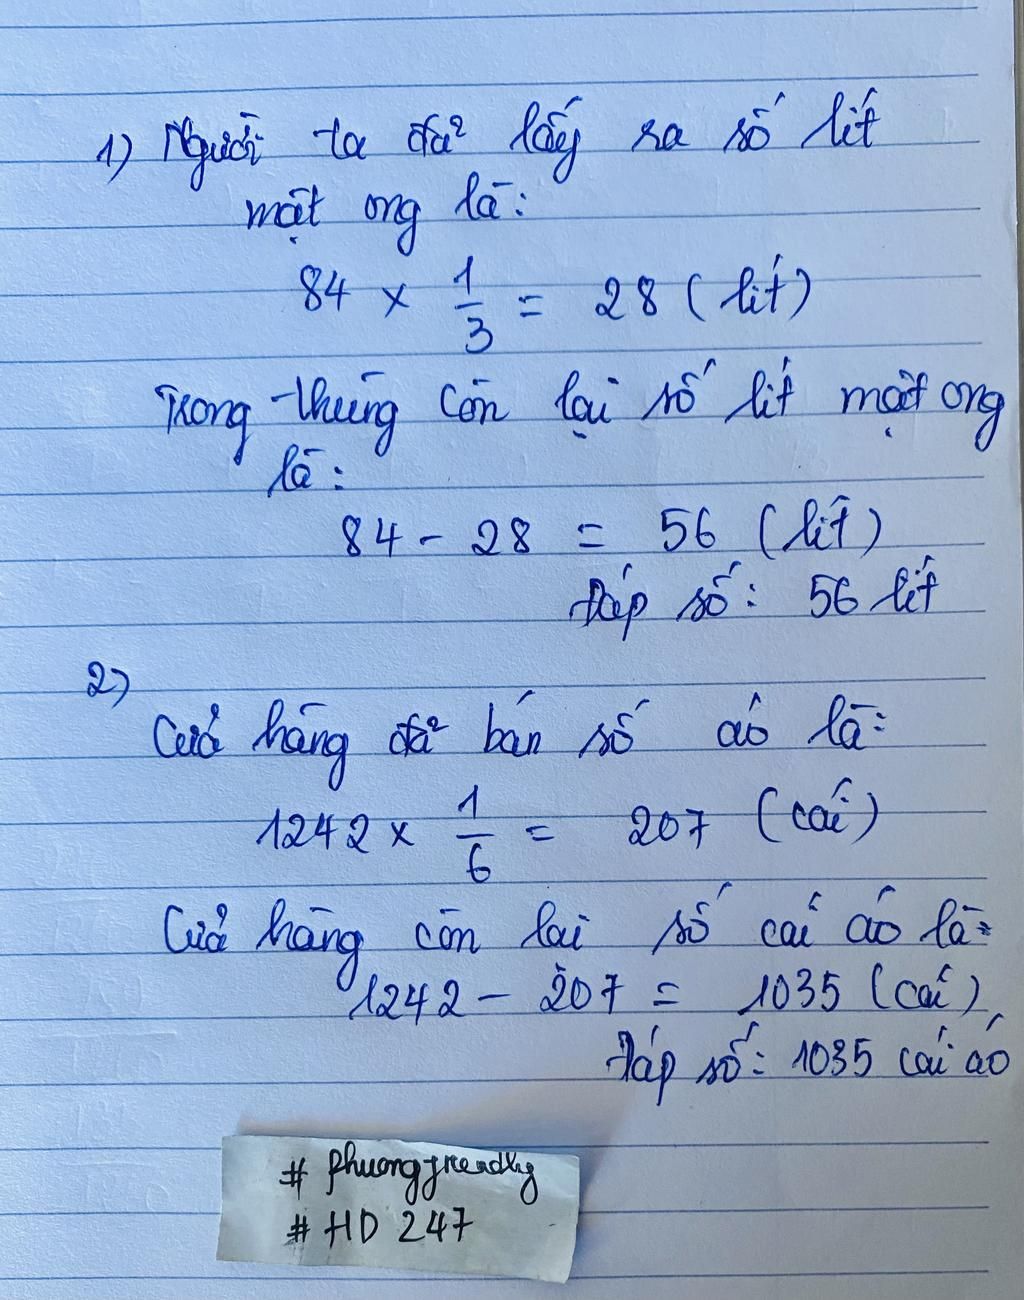 1) Người ta đã lấy ra số lít
mật ong là:
84 × 1/3 = 28 (lít)
Trong thùng còn lại số lít mật ong
là:
84 - 28 = 56 (lít)
Đáp số: 56 lít
2)
Cửa hàng đã bán số áo là:
1242 × 1/6 = 207 (cái)
Cửa hàng còn lại số cái áo là:
1242 - 207 = 1035 (cái)
Đáp số: 1035 cái áo
# phuongfriendly
# HD 247